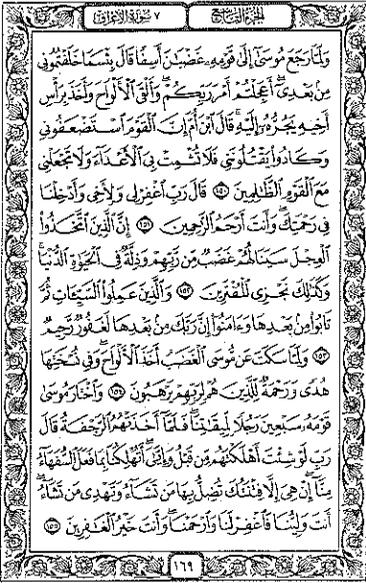 الجزء التاسع ٧ سورة الأعراف
وَلَمَّا رَجَعَ مُوسَىٰٓ إِلَىٰ قَوْمِهِۦ غَضْبَٰنَ أَسِفًا قَالَ بِئْسَمَا خَلَفْتُمُونِى
مِنۢ بَعْدِىٓ ۖ أَعَجِلْتُمْ أَمْرَ رَبِّكُمْ ۖ وَأَلْقَى ٱلْأَلْوَاحَ وَأَخَذَ بِرَأْسِ
أَخِيهِ يَجُرُّهُۥٓ إِلَيْهِ ۚ قَالَ ٱبْنَ أُمَّ إِنَّ ٱلْقَوْمَ ٱسْتَضْعَفُونِى
وَكَادُوا۟ يَقْتُلُونَنِى فَلَا تُشْمِتْ بِىَ ٱلْأَعْدَآءَ وَلَا تَجْعَلْنِى
مَعَ ٱلْقَوْمِ ٱلظَّٰلِمِينَ ۝١٥٠ قَالَ رَبِّ ٱغْفِرْ لِى وَلِأَخِى وَأَدْخِلْنَا
فِى رَحْمَتِكَ ۖ وَأَنتَ أَرْحَمُ ٱلرَّٰحِمِينَ ۝١٥١ إِنَّ ٱلَّذِينَ ٱتَّخَذُوا۟
ٱلْعِجْلَ سَيَنَالُهُمْ غَضَبٌ مِّن رَّبِّهِمْ وَذِلَّةٌ فِى ٱلْحَيَوٰةِ ٱلدُّنْيَا ۚ
وَكَذَٰلِكَ نَجْزِى ٱلْمُفْتَرِينَ ۝١٥٢ وَٱلَّذِينَ عَمِلُوا۟ ٱلسَّيِّـَٔاتِ ثُمَّ
تَابُوا۟ مِنۢ بَعْدِهَا وَءَامَنُوٓا۟ إِنَّ رَبَّكَ مِنۢ بَعْدِهَا لَغَفُورٌ رَّحِيمٌ
۝١٥٣ وَلَمَّا سَكَتَ عَن مُّوسَى ٱلْغَضَبُ أَخَذَ ٱلْأَلْوَاحَ ۖ وَفِى نُسْخَتِهَا
هُدًى وَرَحْمَةٌ لِّلَّذِينَ هُمْ لِرَبِّهِمْ يَرْهَبُونَ ۝١٥٤ وَٱخْتَارَ مُوسَىٰ
قَوْمَهُۥ سَبْعِينَ رَجُلًا لِّمِيقَٰتِنَا ۖ فَلَمَّآ أَخَذَتْهُمُ ٱلرَّجْفَةُ قَالَ
رَبِّ لَوْ شِئْتَ أَهْلَكْتَهُم مِّن قَبْلُ وَإِيَّٰىَ ۖ أَتُهْلِكُنَا بِمَا فَعَلَ ٱلسُّفَهَآءُ
مِنَّآ ۖ إِنْ هِىَ إِلَّا فِتْنَتُكَ تُضِلُّ بِهَا مَن تَشَآءُ وَتَهْدِى مَن تَشَآءُ ۖ
أَنتَ وَلِيُّنَا فَٱغْفِرْ لَنَا وَٱرْحَمْنَا ۖ وَأَنتَ خَيْرُ ٱلْغَٰفِرِينَ ۝١٥٥
١٦٩